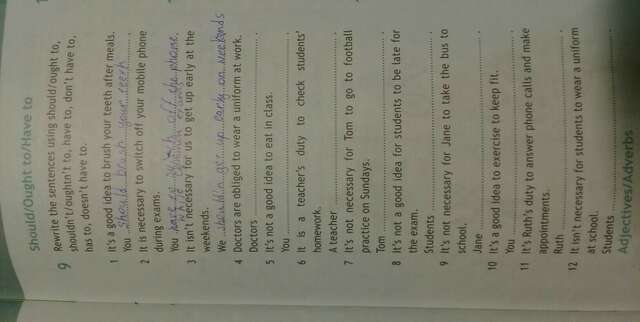 Should/Ought to/Have to
9 Rewrite the sentences using should/ought to,
shouldn't/oughtn't to, have to, don't have to,
has to, doesn't have to.
1 It's a good idea to brush your teeth after meals.
You should brush your teeth
2 It is necessary to switch off your mobile phone
during exams.
You off the phone.
3 It isn't necessary for us to get up early at the
weekends.
We get up early on weekends
4 Doctors are obliged to wear a uniform at work.
Doctors
5 It's not a good idea to eat in class.
You
6 It is a teacher's duty to check students'
homework.
A teacher
7 It's not necessary for Tom to go to football
practice on Sundays.
Tom
8 It's not a good idea for students to be late for
the exam.
Students
9 It's not necessary for Jane to take the bus to
school.
Jane
10 It's a good idea to exercise to keep fit.
You
11 It's Ruth's duty to answer phone calls and make
appointments.
Ruth
12 It isn't necessary for students to wear a uniform
at school.
Students
Adjectives/Adverbs